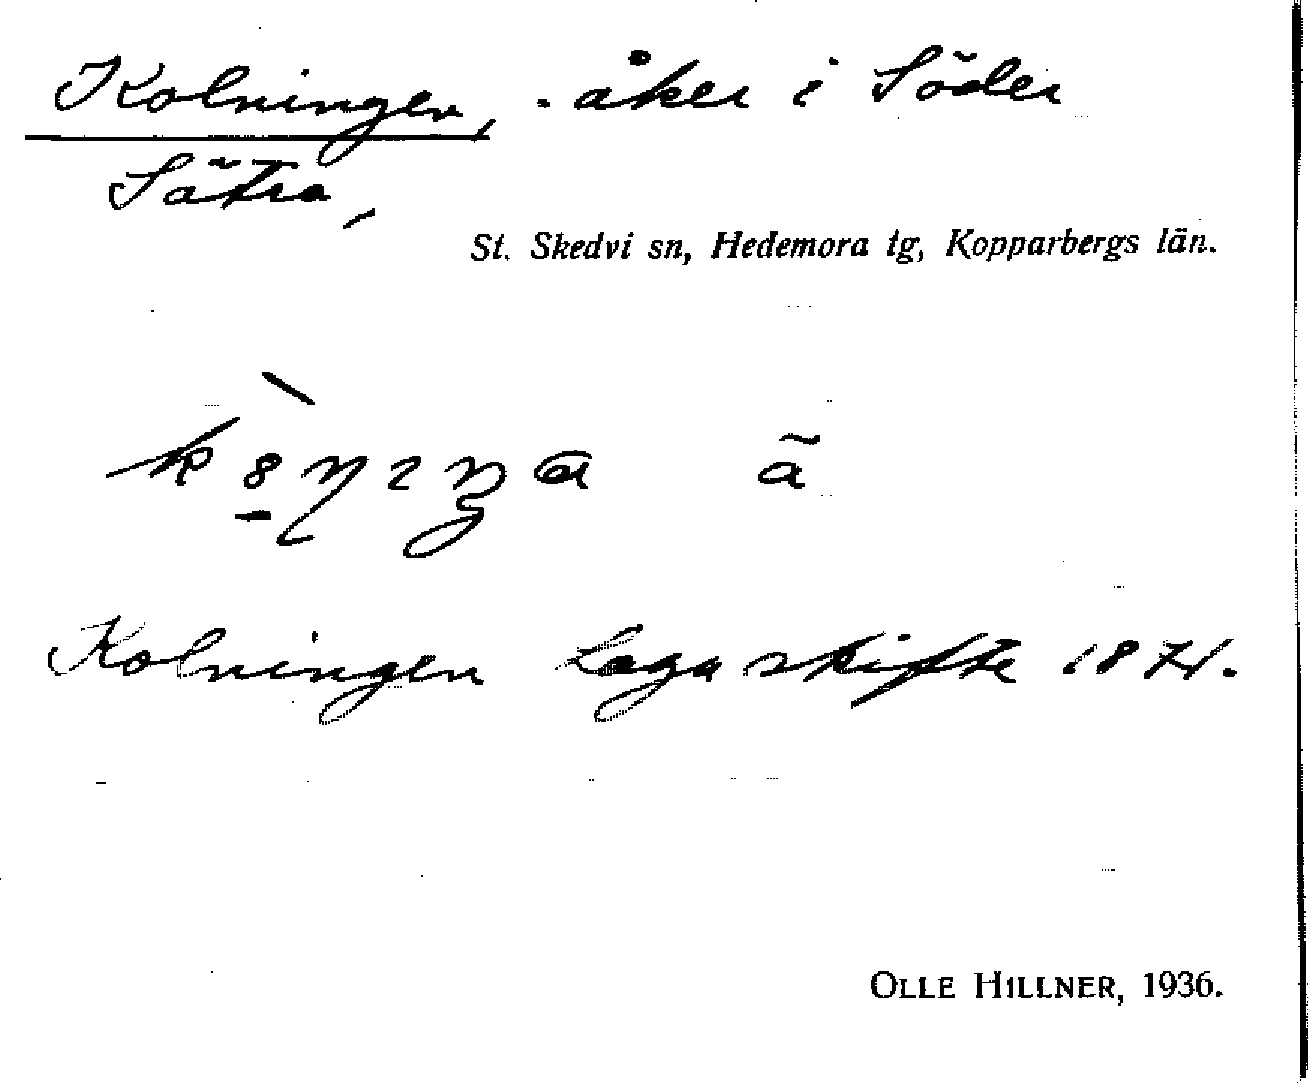 Kolningen, . åker i Söder
Sätra,
St. Skedvi sn, Hedemora tg, Kopparbergs län.
ã
Kolningen Laga skifte 1871.
OLLE HILLNER, 1936.